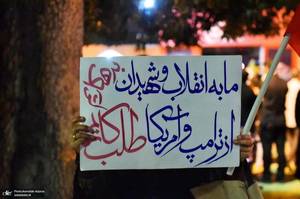 ما به انقلاب و شهیدان بدهکاریم
از ترامپ و آمریکا طلبکاریم